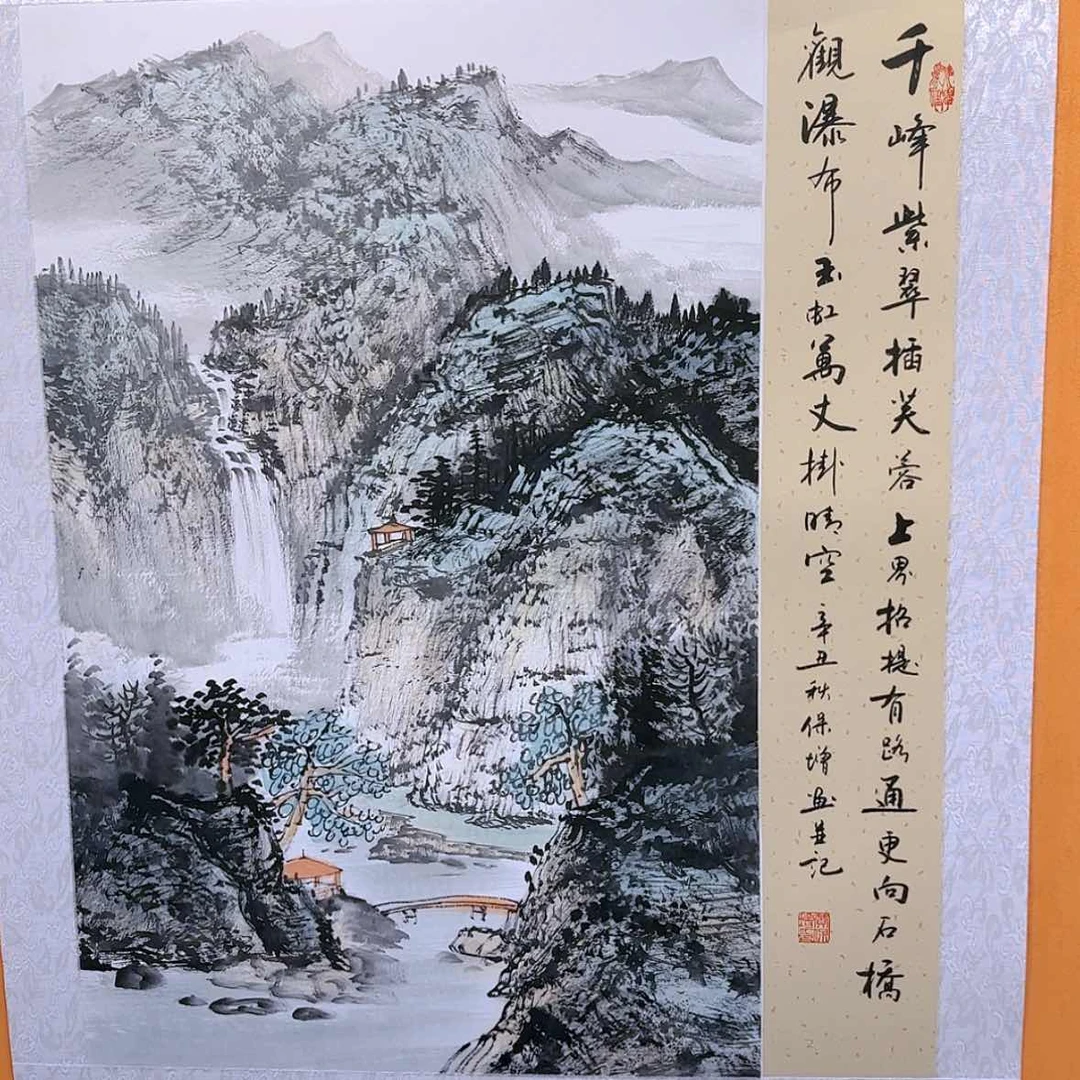 千峰紫翠插芙蓉上界招提有路通更向石橋
觀瀑布玉虹萬丈掛晴空辛丑秋保增畫並記